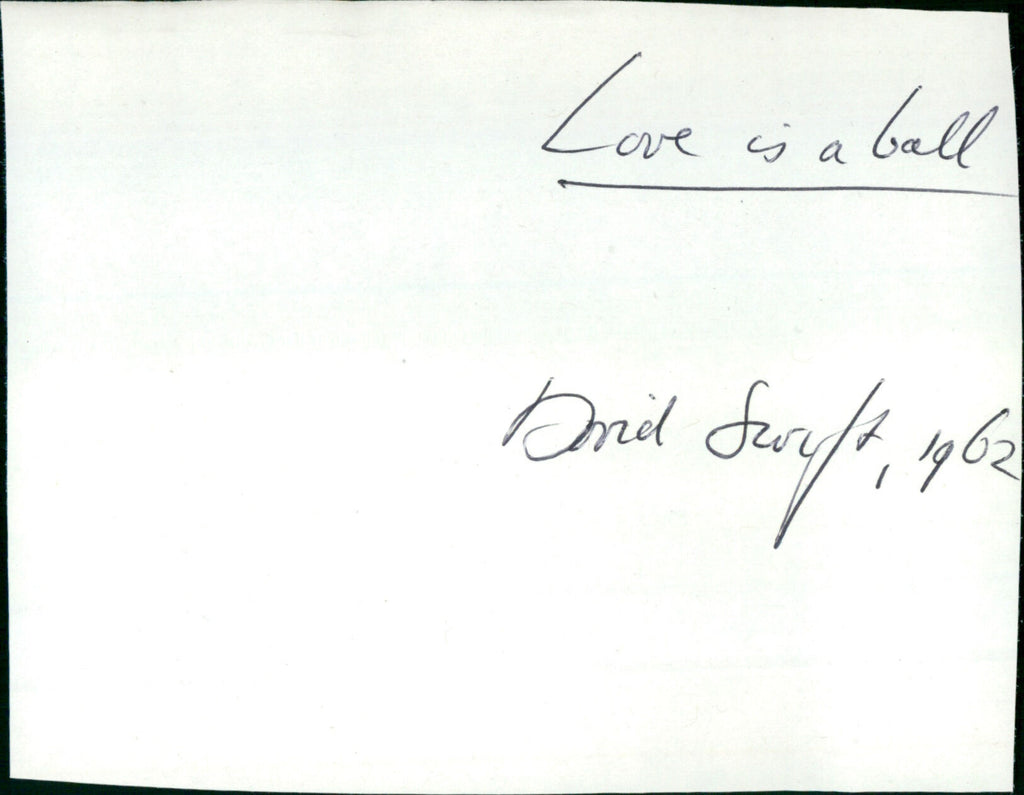 Love is a ball
David Swift, 1962